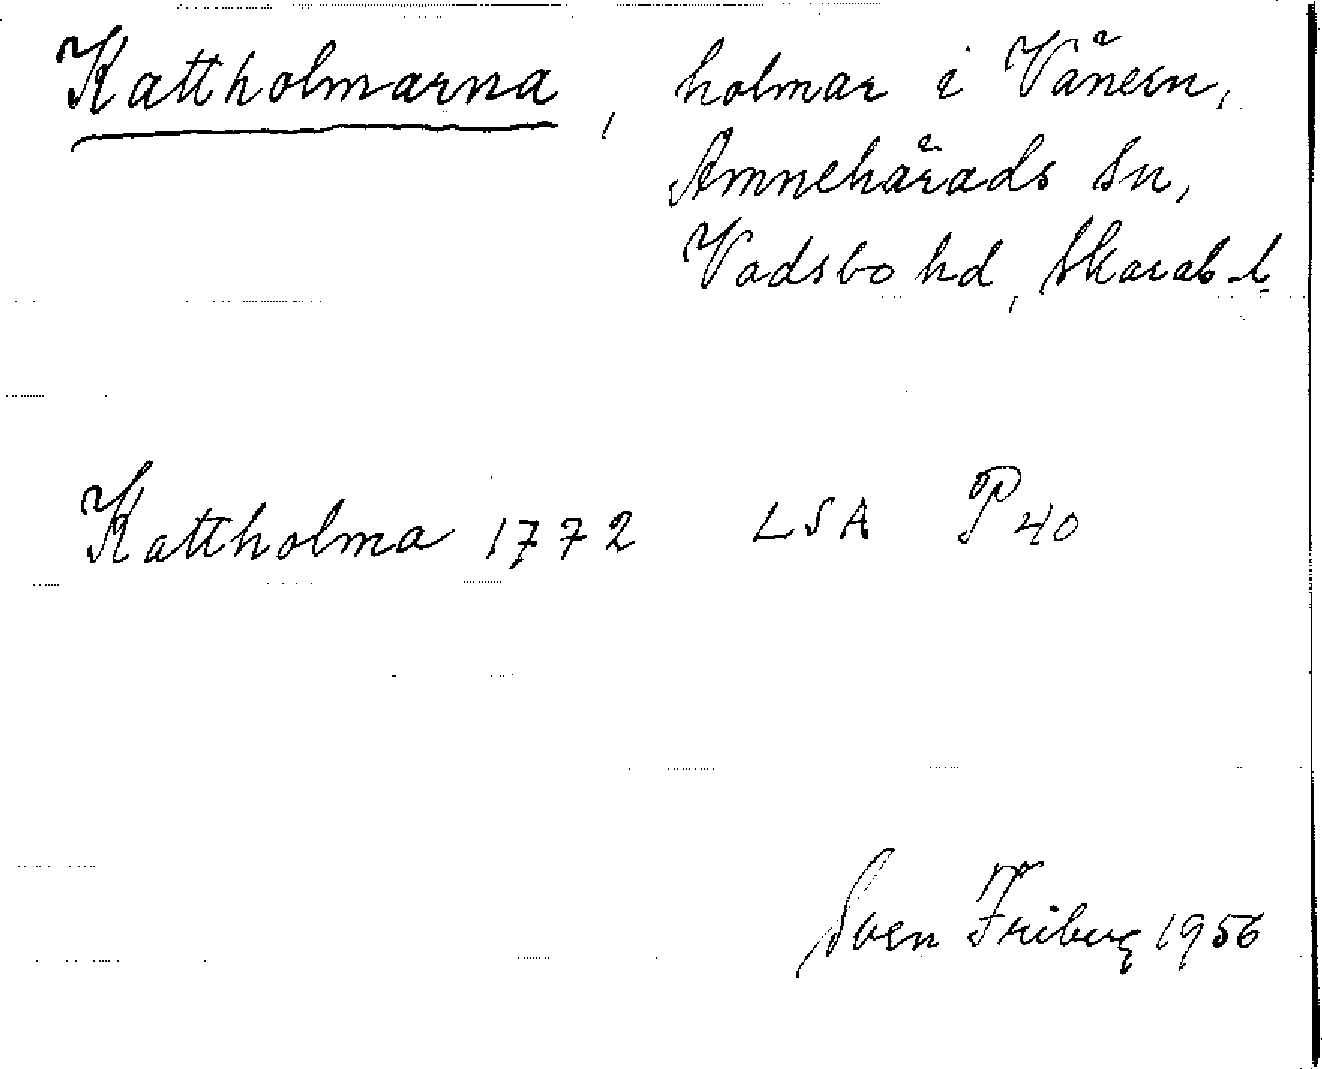 Kattholmarna, holmar i Vänern,
Amnehärads sn,
Vadsbo hd, Skarab. l.
Kattholma 1772 LSA P 40
Sven Friberg 1956